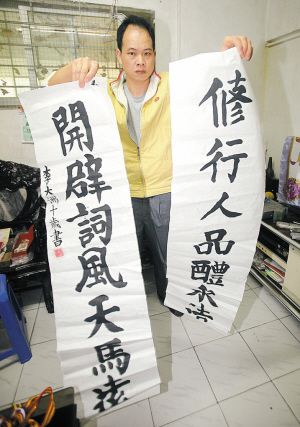 修行人品醴水法
開辟詞風天馬
李大十歲書